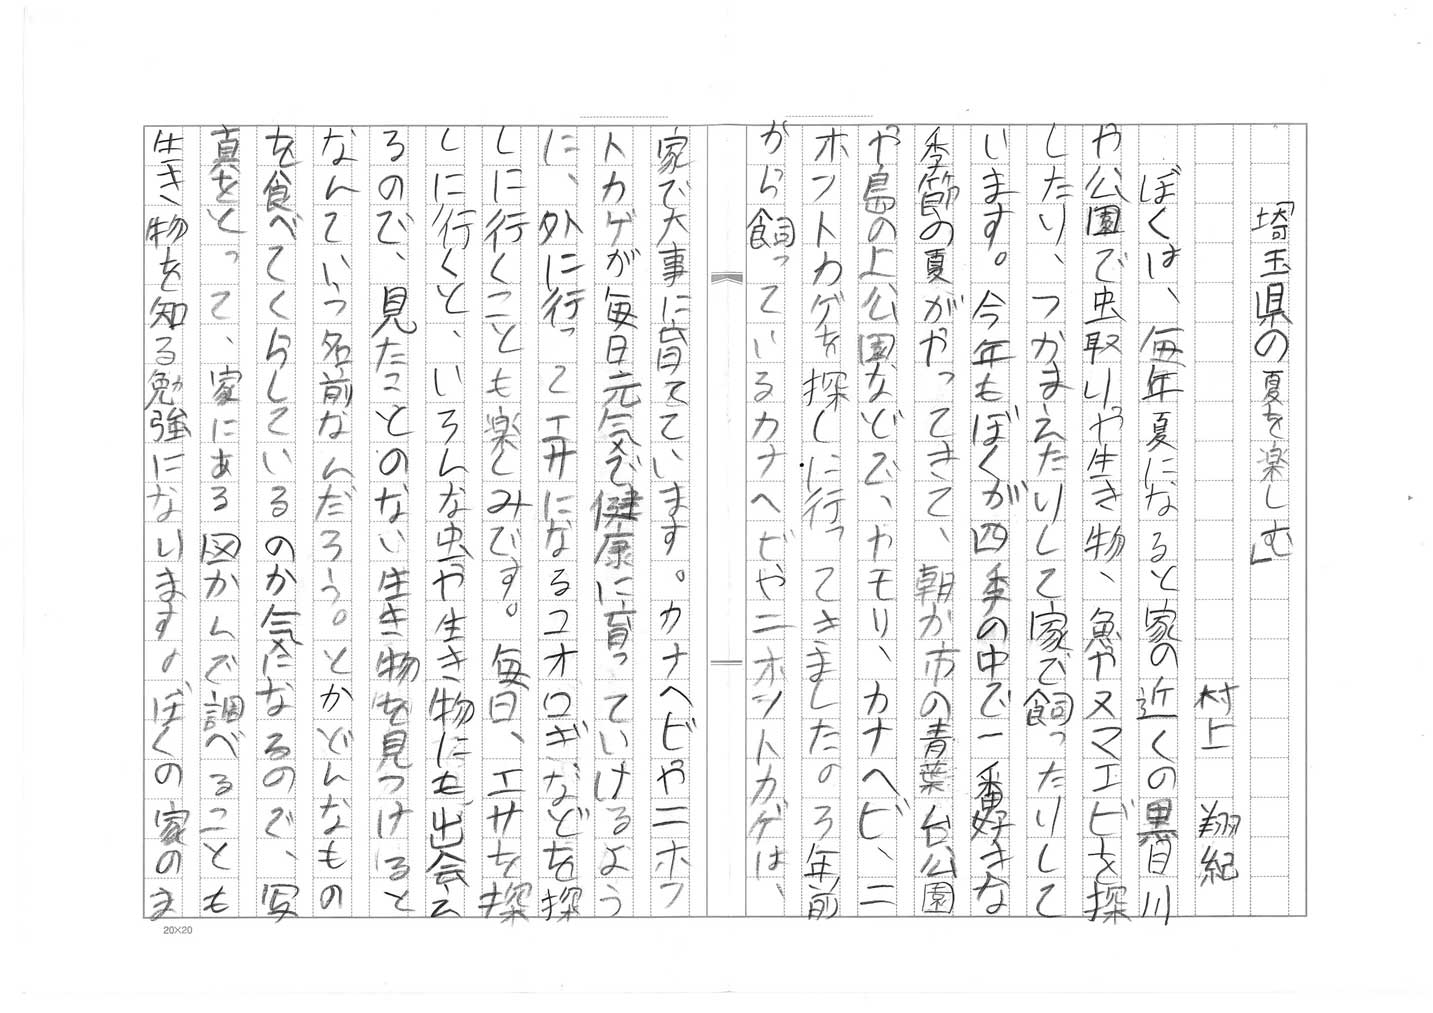 「埼玉県の夏を楽しむ」
村上　翔紀
ぼくは、毎年夏になると家の近くの黒目川
や公園で虫取りや生き物、魚やヌマエビを探
したり、つかまえたりして家で飼ったりして
います。今年もぼくが四季の中で一番好きな
季節の夏がやってきて、朝か市の青葉台公園
や島の上公園などで、ヤモリ、カナヘビ、ニ
ホントカゲを探しに行ってきました。3年前
から飼っているカナヘビやニホントカゲは、
家で大事に育てています。カナヘビやニホン
トカゲが毎日元気で健康に育っていけるよう
に、外に行ってエサになるコオロギなどを探
しに行くことも楽しみです。毎日、エサを探
しに行くと、いろんな虫や生き物にも出会え
るので、見たことのない生き物を見つけると
なんていう名前なんだろう。とかどんなもの
を食べてくらしているのか気になるので、写
真をとって、家にある図かんで調べることも
生き物を知る勉強になります。ぼくの家のま
20×20